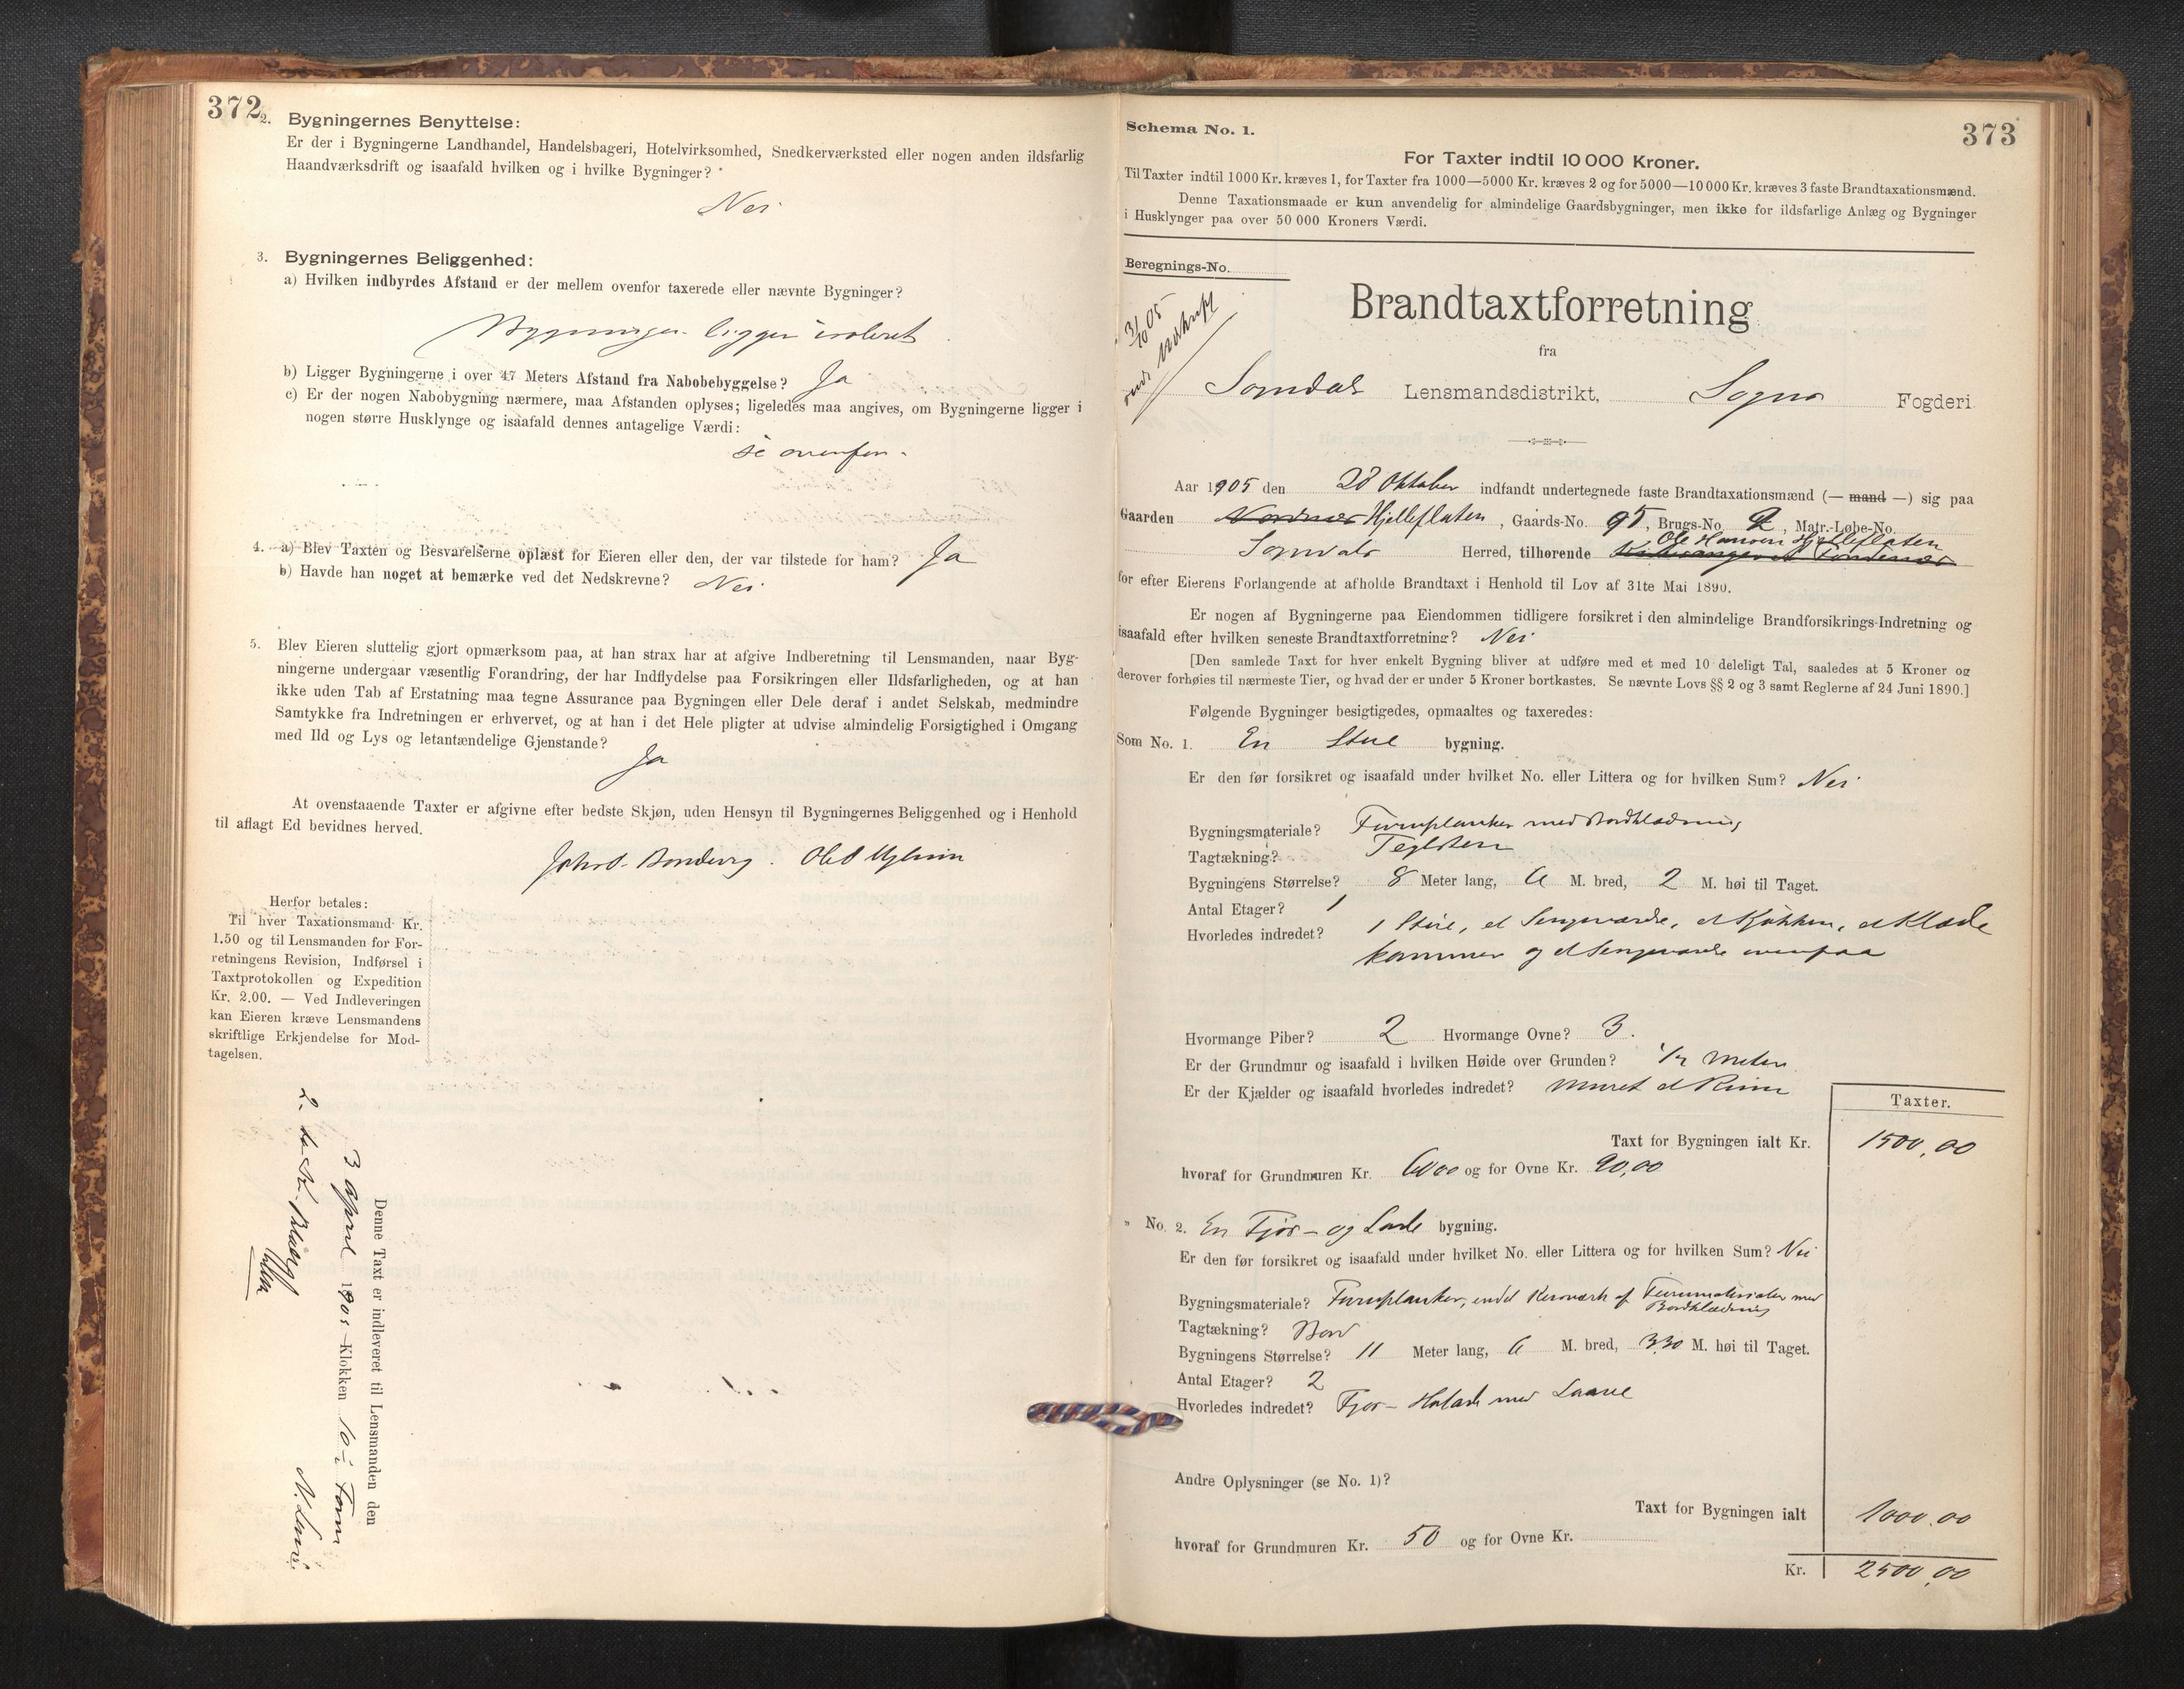 372
2. Bygningernes Benyttelse:
Er der i Bygningerne Landhandel, Handelsbageri, Hotelvirksomhed, Snedkerværksted eller nogen anden ildsfarlig
Haandværksdrift og isaafald hvilken og i hvilke Bygninger?
Nei
3. Bygningernes Beliggenhed:
a) Hvilken indbyrdes Afstand er der mellem ovenfor taxerede eller nævnte Bygninger?
ligger isoleret
b) Ligger Bygningerne i over 47 Meters Afstand fra Nabobebyggelse? Ja
c) Er der nogen Nabobygning nærmere, maa Afstanden oplyses; ligeledes maa angives, om Bygningerne ligger i
nogen større Husklynge og isaafald dennes antagelige Værdi:
se ovenfor.
4. a) Blev Taxten og Besvarelserne oplæst for Eieren eller den, der var tilstede for ham? Ja
b) Havde han noget at bemærke ved det Nedskrevne? Nei
5. Blev Eieren sluttelig gjort opmærksom paa, at han strax har at afgive Indberetning til Lensmanden, naar Byg-
ningerne undergaar væsentlig Forandring, der har Indflydelse paa Forsikringen eller Ildsfarligheden, og at han
ikke uden Tab af Erstatning maa tegne Assurance paa Bygningen eller Dele deraf i andet Selskab, medmindre
Samtykke fra Indretningen er erhvervet, og at han i det Hele pligter at udvise almindelig Forsigtighed i Omgang
med Ild og Lys og letantændelige Gjenstande?
Ja
At ovenstaaende Taxter er afgivne efter bedste Skjøn, uden Hensyn til Bygningernes Beliggenhed og i Henhold
til aflagt Ed bevidnes herved.
Herfor betales:
Til hver Taxationsmand Kr.
1.50 og til Lensmanden for For-
retningens Revision, Indførsel i
Taxtprotokollen og Expedition
Kr. 2.00. — Ved Indleveringen
kan Eieren kræve Lensmandens
skriftlige Erkjendelse for Mod-
tagelsen.
Denne Taxt er indleveret til Lensmanden den
3 April 1905 Klokken 10 Form
Schema No. 1.
373
For Taxter indtil 10 000 Kroner.
Til Taxter indtil 1000 Kr. kræves 1, for Taxter fra 1000—5000 Kr. kræves 2 og for 5000—10 000 Kr. kræves 3 faste Brandtaxationsmænd.
Denne Taxationsmaade er kun anvendelig for almindelige Gaardsbygninger, men ikke for ildsfarlige Anlæg og Bygninger
i Husklynger paa over 50 000 Kroners Værdi.
Beregnings-No.
3/10 05
Brandtaxtforretning
fra
Lensmandsdistrikt, Sogns Fogderi
Aar 1905 den 28 Oktober indfandt undertegnede faste Brandtaxationsmænd (— mand —) sig paa
Gaarden Hjelleflaten, Gaards-No. 95, Brugs-No. 2, Matr.-Løbe-No.
Ole Hansen Hjelleflaten
Herred, tilhørende
for efter Eierens Forlangende at afholde Brandtaxt i Henhold til Lov af 31te Mai 1890.
Er nogen af Bygningerne paa Eiendommen tidligere forsikret i den almindelige Brandforsikrings-Indretning og
isaafald efter hvilken seneste Brandtaxtforretning? Nei
[Den samlede Taxt for hver enkelt Bygning bliver at udføre med et med 10 deleligt Tal, saaledes at 5 Kroner og
derover forhøies til nærmeste Tier, og hvad der er under 5 Kroner bortkastes. Se nævnte Lovs §§ 2 og 3 samt Reglerne af 24 Juni 1890.]
Følgende Bygninger besigtigedes, opmaaltes og taxeredes:
Som No. 1. En Stue bygning.
Er den før forsikret og isaafald under hvilket No. eller Littera og for hvilken Sum? Nei
Bygningsmateriale? Furuplanker med Bordklædning
Tagtækning? Teglsten
Bygningens Størrelse? 8 Meter lang, 6 M. bred, 2 M. høi til Taget.
Antal Etager? 1
Hvorledes indredet? 1 Stue, et Sengeværelse, et Kjøkken, et Klæde
kammer og et Sengeværelse ovenpaa
Hvormange Piber? 2 Hvormange Ovne? 3.
Er der Grundmur og isaafald i hvilken Høide over Grunden? 1/2 Meter
Er der Kjælder og isaafald hvorledes indredet? Muret et Rum
Taxter.
Taxt for Bygningen ialt Kr. 1500,00
hvoraf for Grundmuren Kr. 6000 og for Ovne Kr. 90,00
" No. 2. En Fjøs- og Lade bygning.
Er den før forsikret og isaafald under hvilket No. eller Littera og for hvilken Sum? Nei
Bygningsmateriale? Furuplanker, endel af Furumaterialer med
Bordklædning
Tagtækning? Bord
Bygningens Størrelse? 11 Meter lang, 6 M. bred, 3,30 M. høi til Taget.
Antal Etager? 2
Hvorledes indredet? Fjøs- med Laave
Andre Oplysninger (se No. 1)?
Taxt for Bygningen ialt 1000.00
hvoraf for Grundmuren Kr. 50 og for Ovne Kr.
Kr. 2500,00